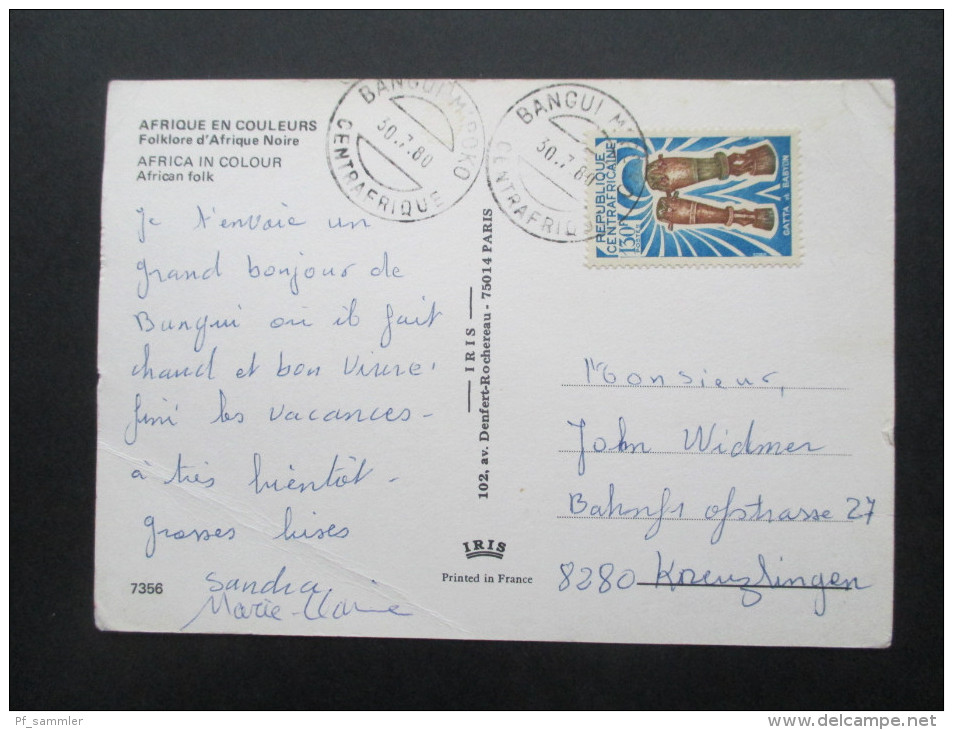 AFRIQUE EN COULEURS
Folklore d'Afrique Noire
AFRICA IN COLOUR
African folk
Je t'envoie un
grand bonjour de
Bangui où il fait
chaud et bon vivre.
fini les vacances -
à très bientôt -
grosses bises
Sandra
Marie-Claire
7356
BANGUI M'POKO
30.7.80
CENTRAFRIQUE
BANGUI M
30.7.80
CENTRAFRIQU
REPUBLIQUE
CENTRAFRICAINE
130F
POSTES
GATTA et BABYON
IRIS
102, av. Denfert-Rochereau - 75014 PARIS
IRIS
Printed in France
Monsieur,
John Widmer
Bahnhofstrasse 27
8280 Kreuzlingen
Pf_sammler
www.delcampe.net